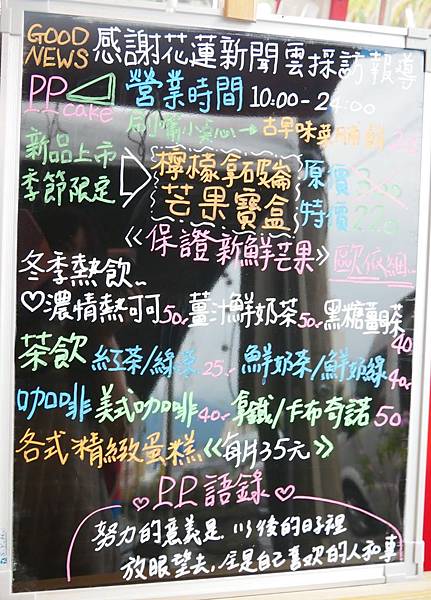 GOOD NEWS 感謝花蓮新聞雲採訪報導
PP cake 營業時間 10:00-24:00
古早味
新品上市
季節限定
檸檬拿破崙
芒果寶盒
原價
特價 220
《保證新鮮芒果》
冬季熱飲
♡濃情熱可可50 薑汁鮮奶茶50 黑糖薑母茶40
茶飲 紅茶/綠茶25 鮮奶茶/鮮奶綠40
咖啡 美式咖啡40 拿鐵/卡布奇諾50
各式精緻蛋糕《每片35元》
♡P.P.語錄♡
努力的意義是 以後的日子裡
放眼望去,全是自己喜歡的人和事